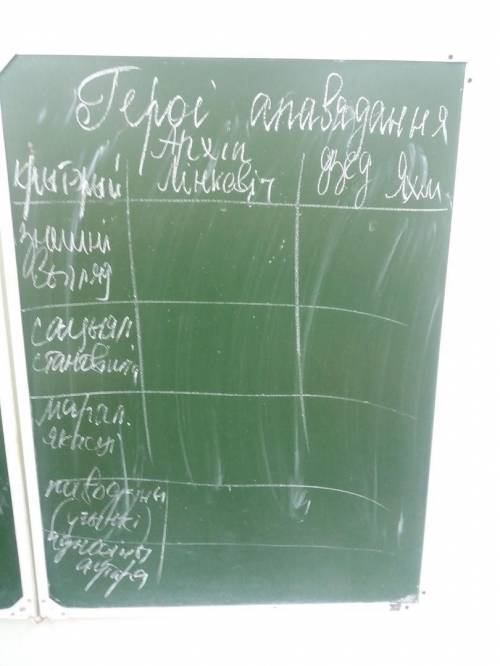 Героі апавядання
крытэрый
Архіп
Лінкевіч
дзед Яхім
знешні
выгляд
сацыял.
становішча
марал.
якасці
паводзіны
(учынкі)
адносіны
аўтара